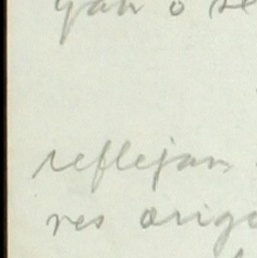 yan o se
reflejan
res orig